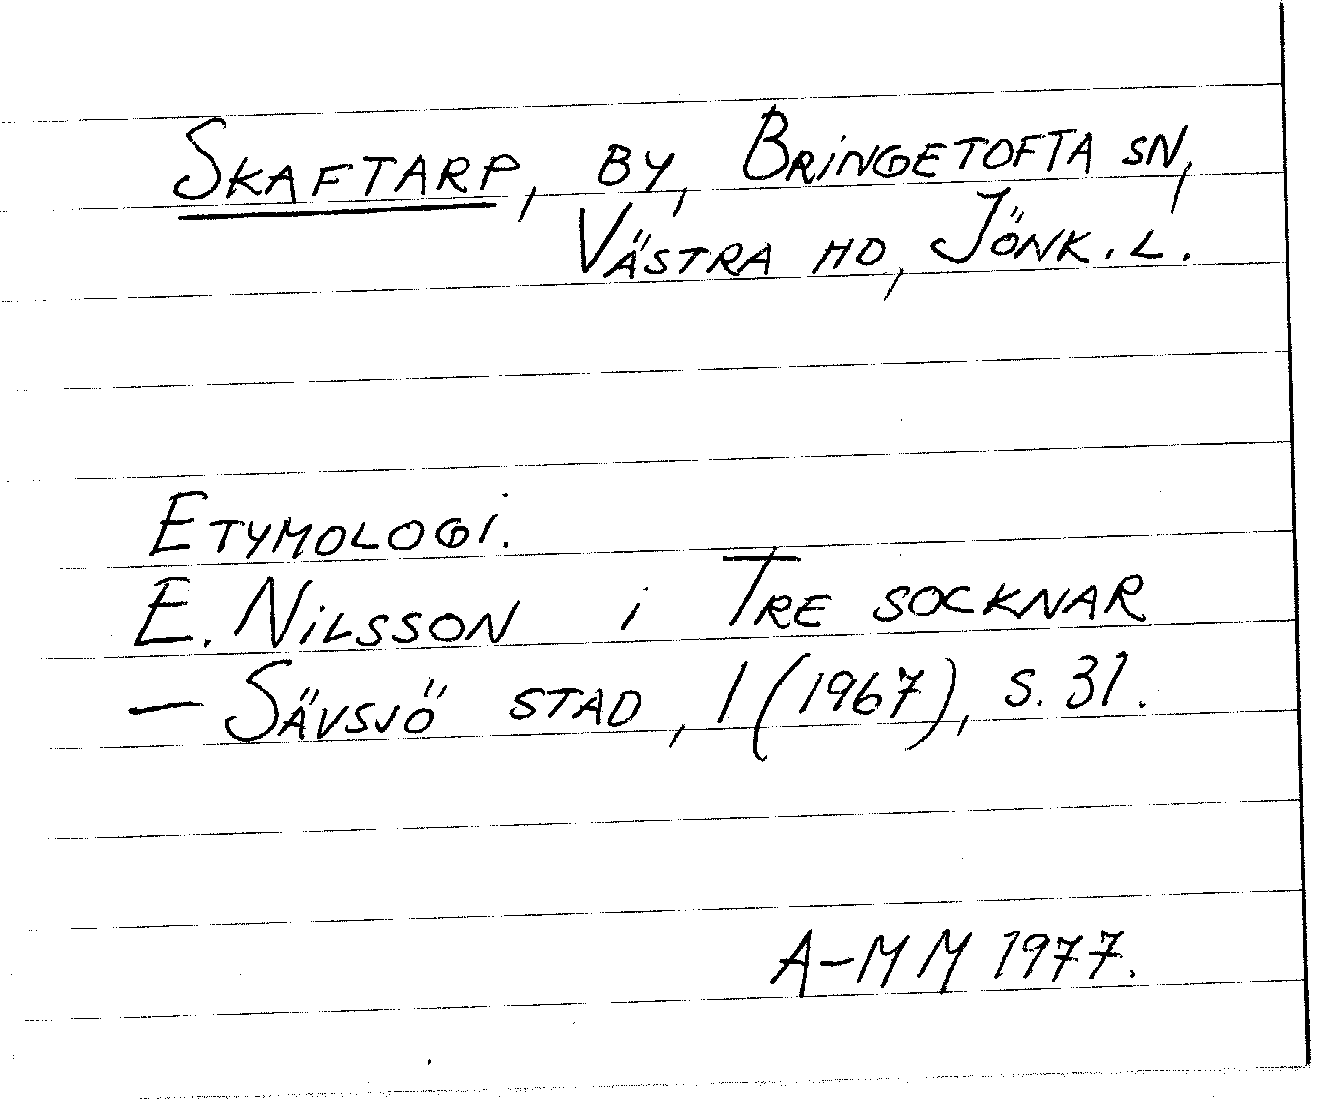 SKAFTARP, BY, BRINGETOFTA SN,
VÄSTRA HD, JÖNK. L.
ETYMOLOGI.
E. NILSSON i TRE SOCKNAR
— SÄVSJÖ STAD, 1 (1967), S. 31.
A-MM 1977.